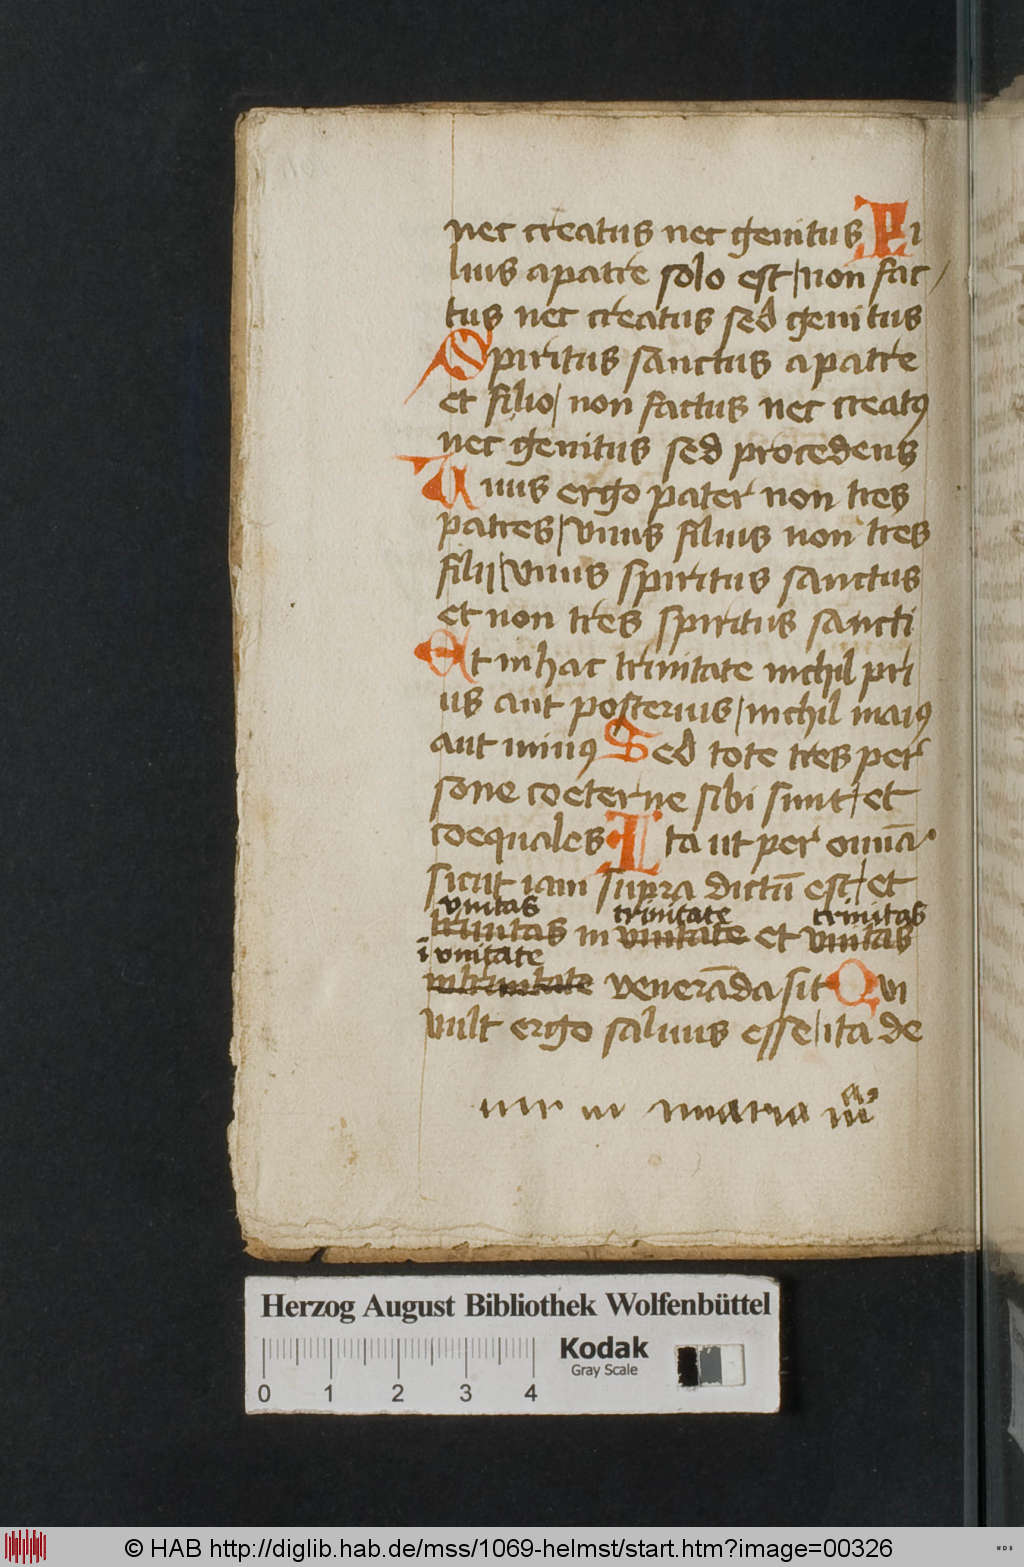 nec creatus nec genitus Fi
lius a patre solo est / non fac
tus nec creatus sed genitus
Spiritus sanctus a patre
et filio / non factus nec creatꝰ
nec genitus sed procedens
Unus ergo pater non tres
patres / vnus filius non tres
filij / vnus spiritus sanctus
et non tres spiritus sancti
Et in hac trinitate nichil pri
us aut posterius / nichil maiꝰ
aut minꝰ Sed tote tres per
sone coeterne sibi sunt / et
coequales Ita ut per omīa
sicut iam supra dictū est / et
vnitas trinitate trinitas
trinitas in vnitate et vnitas
ī vnitate
in trinitate venerāda sit Qui
vult ergo saluus esse / ita de
maria
Herzog August Bibliothek Wolfenbüttel
Kodak
Gray Scale
0 1 2 3 4
© HAB http://diglib.hab.de/mss/1069-helmst/start.htm?image=00326